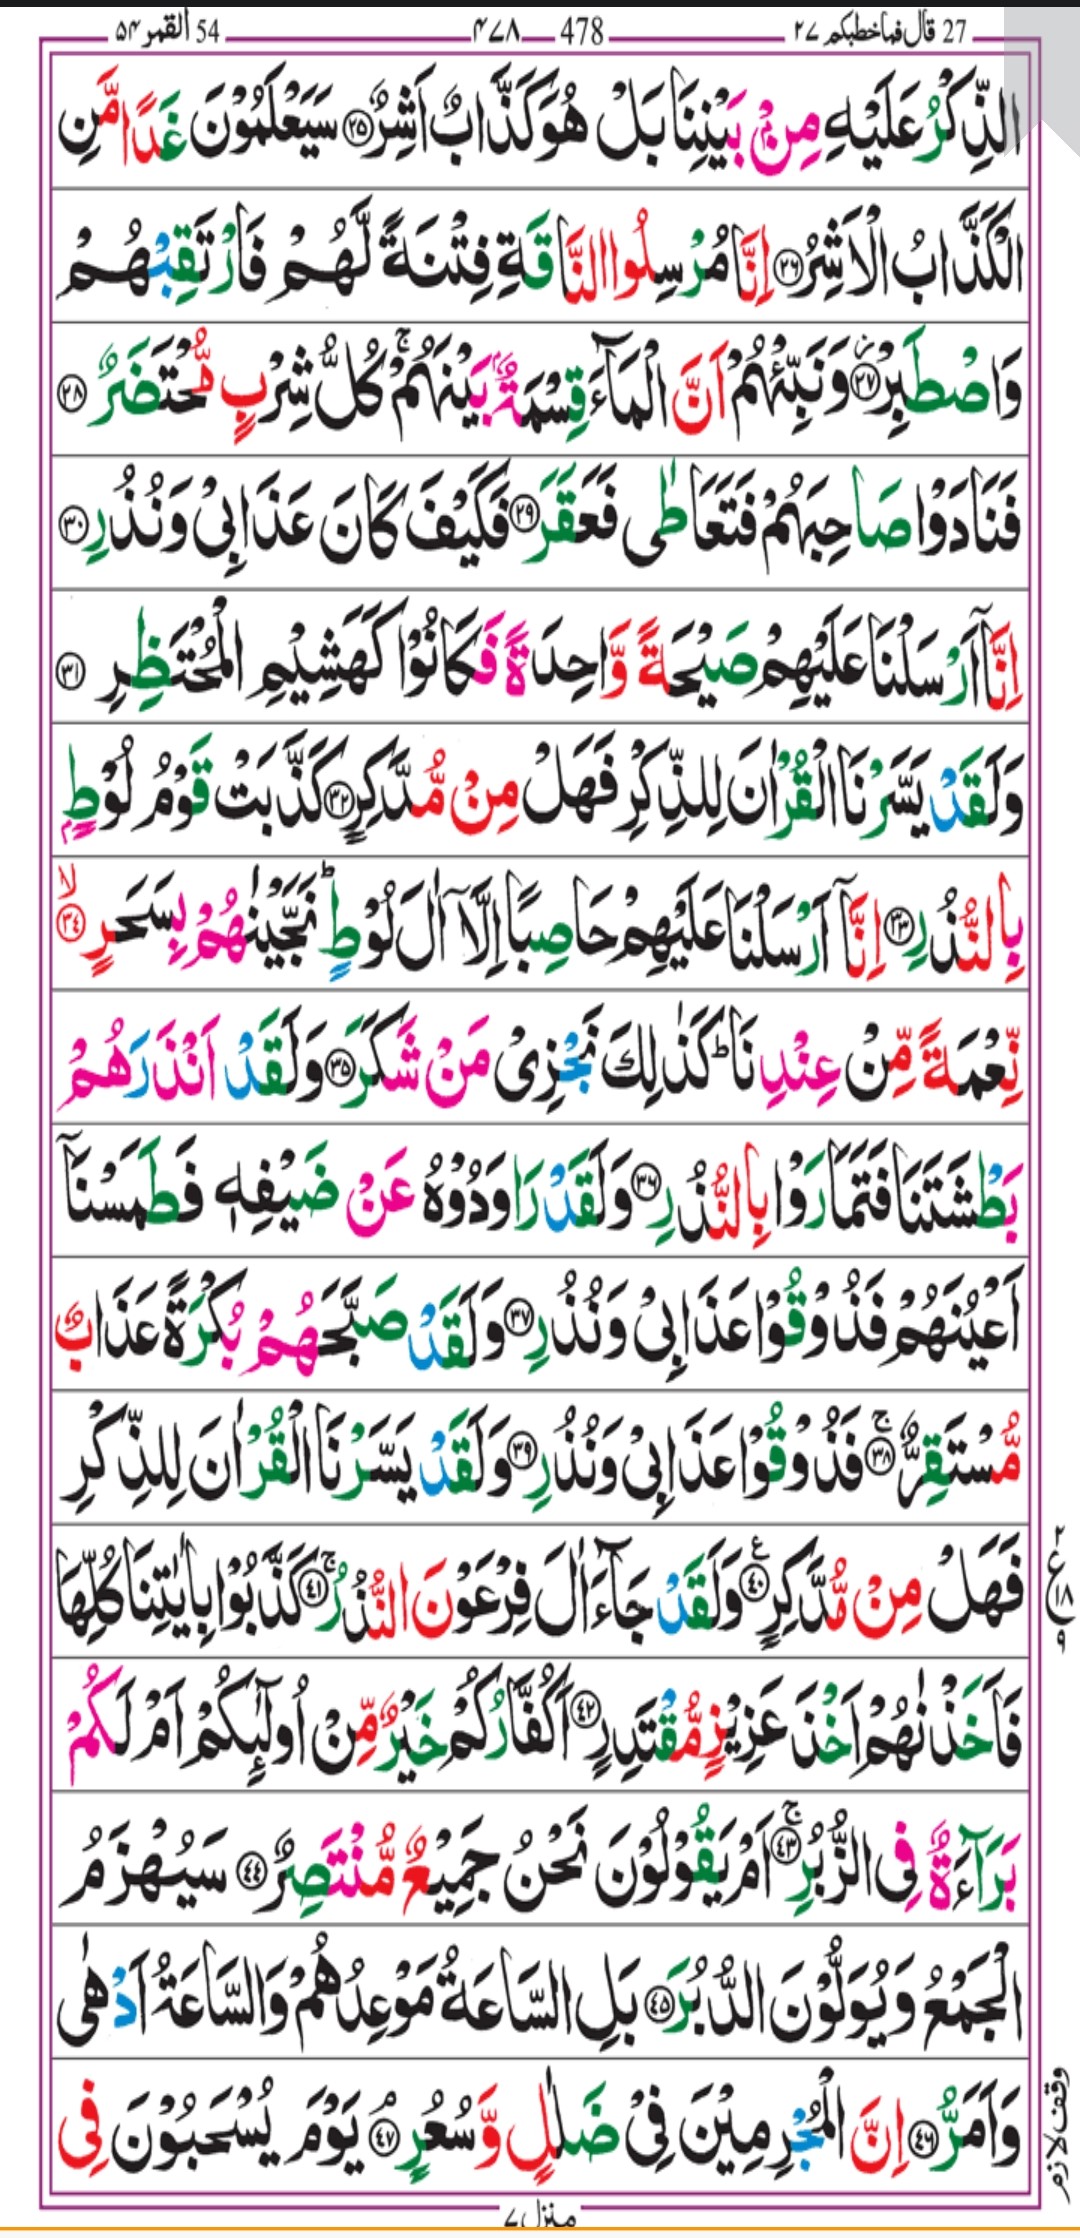 27 قال فما خطبكم ٢٧ 478 ٤٧٨ 54 القمر ٥٤
الذِّكْرُ عَلَيْهِ مِنْۢ بَيْنِنَا بَلْ هُوَ كَذَّابٌ اَشِرٌ ٢٥ سَيَعْلَمُوْنَ غَدًا مَّنِ
الْكَذَّابُ الْاَشِرُ ٢٦ اِنَّا مُرْسِلُوا النَّاقَةِ فِتْنَةً لَّهُمْ فَارْتَقِبْهُمْ
وَاصْطَبِرْ ٢٧ وَنَبِّئْهُمْ اَنَّ الْمَآءَ قِسْمَةٌۢ بَيْنَهُمْ ۚ كُلُّ شِرْبٍ مُّحْتَضَرٌ ٢٨
فَنَادَوْا صَاحِبَهُمْ فَتَعَاطٰى فَعَقَرَ ٢٩ فَكَيْفَ كَانَ عَذَابِىْ وَنُذُرِ ٣٠
اِنَّاۤ اَرْسَلْنَا عَلَيْهِمْ صَيْحَةً وَّاحِدَةً فَكَانُوْا كَهَشِيْمِ الْمُحْتَظِرِ ٣١
وَلَقَدْ يَسَّرْنَا الْقُرْاٰنَ لِلذِّكْرِ فَهَلْ مِنْ مُّدَّكِرٍ ٣٢ كَذَّبَتْ قَوْمُ لُوْطٍۭ
بِالنُّذُرِ ٣٣ اِنَّاۤ اَرْسَلْنَا عَلَيْهِمْ حَاصِبًا اِلَّاۤ اٰلَ لُوْطٍ ؕ نَجَّيْنٰهُمْ بِسَحَرٍ ۙ ٣٤
نِّعْمَةً مِّنْ عِنْدِنَا ؕ كَذٰلِكَ نَجْزِىْ مَنْ شَكَرَ ٣٥ وَلَقَدْ اَنْذَرَهُمْ
بَطْشَتَنَا فَتَمَارَوْا بِالنُّذُرِ ٣٦ وَلَقَدْ رَاوَدُوْهُ عَنْ ضَيْفِهٖ فَطَمَسْنَاۤ
اَعْيُنَهُمْ فَذُوْقُوْا عَذَابِىْ وَنُذُرِ ٣٧ وَلَقَدْ صَبَّحَهُمْ بُكْرَةً عَذَابٌ
مُّسْتَقِرٌّ ۚ ٣٨ فَذُوْقُوْا عَذَابِىْ وَنُذُرِ ٣٩ وَلَقَدْ يَسَّرْنَا الْقُرْاٰنَ لِلذِّكْرِ
فَهَلْ مِنْ مُّدَّكِرٍ ٤٠ ع وَلَقَدْ جَآءَ اٰلَ فِرْعَوْنَ النُّذُرُ ۚ ٤١ كَذَّبُوْا بِاٰيٰتِنَا كُلِّهَا
٢ ع ١٨ ٩
فَاَخَذْنٰهُمْ اَخْذَ عَزِيْزٍ مُّقْتَدِرٍ ٤٢ اَكُفَّارُكُمْ خَيْرٌ مِّنْ اُولٰٓئِكُمْ اَمْ لَكُمْ
بَرَآءَةٌ فِى الزُّبُرِ ۚ ٤٣ اَمْ يَقُوْلُوْنَ نَحْنُ جَمِيْعٌ مُّنْتَصِرٌ ٤٤ سَيُهْزَمُ
الْجَمْعُ وَيُوَلُّوْنَ الدُّبُرَ ٤٥ بَلِ السَّاعَةُ مَوْعِدُهُمْ وَالسَّاعَةُ اَدْهٰى
وَاَمَرُّ ٤٦ اِنَّ الْمُجْرِمِيْنَ فِىْ ضَلٰلٍ وَّسُعُرٍ ۘ ٤٧ يَوْمَ يُسْحَبُوْنَ فِى
وقف لازم
منزل ٧